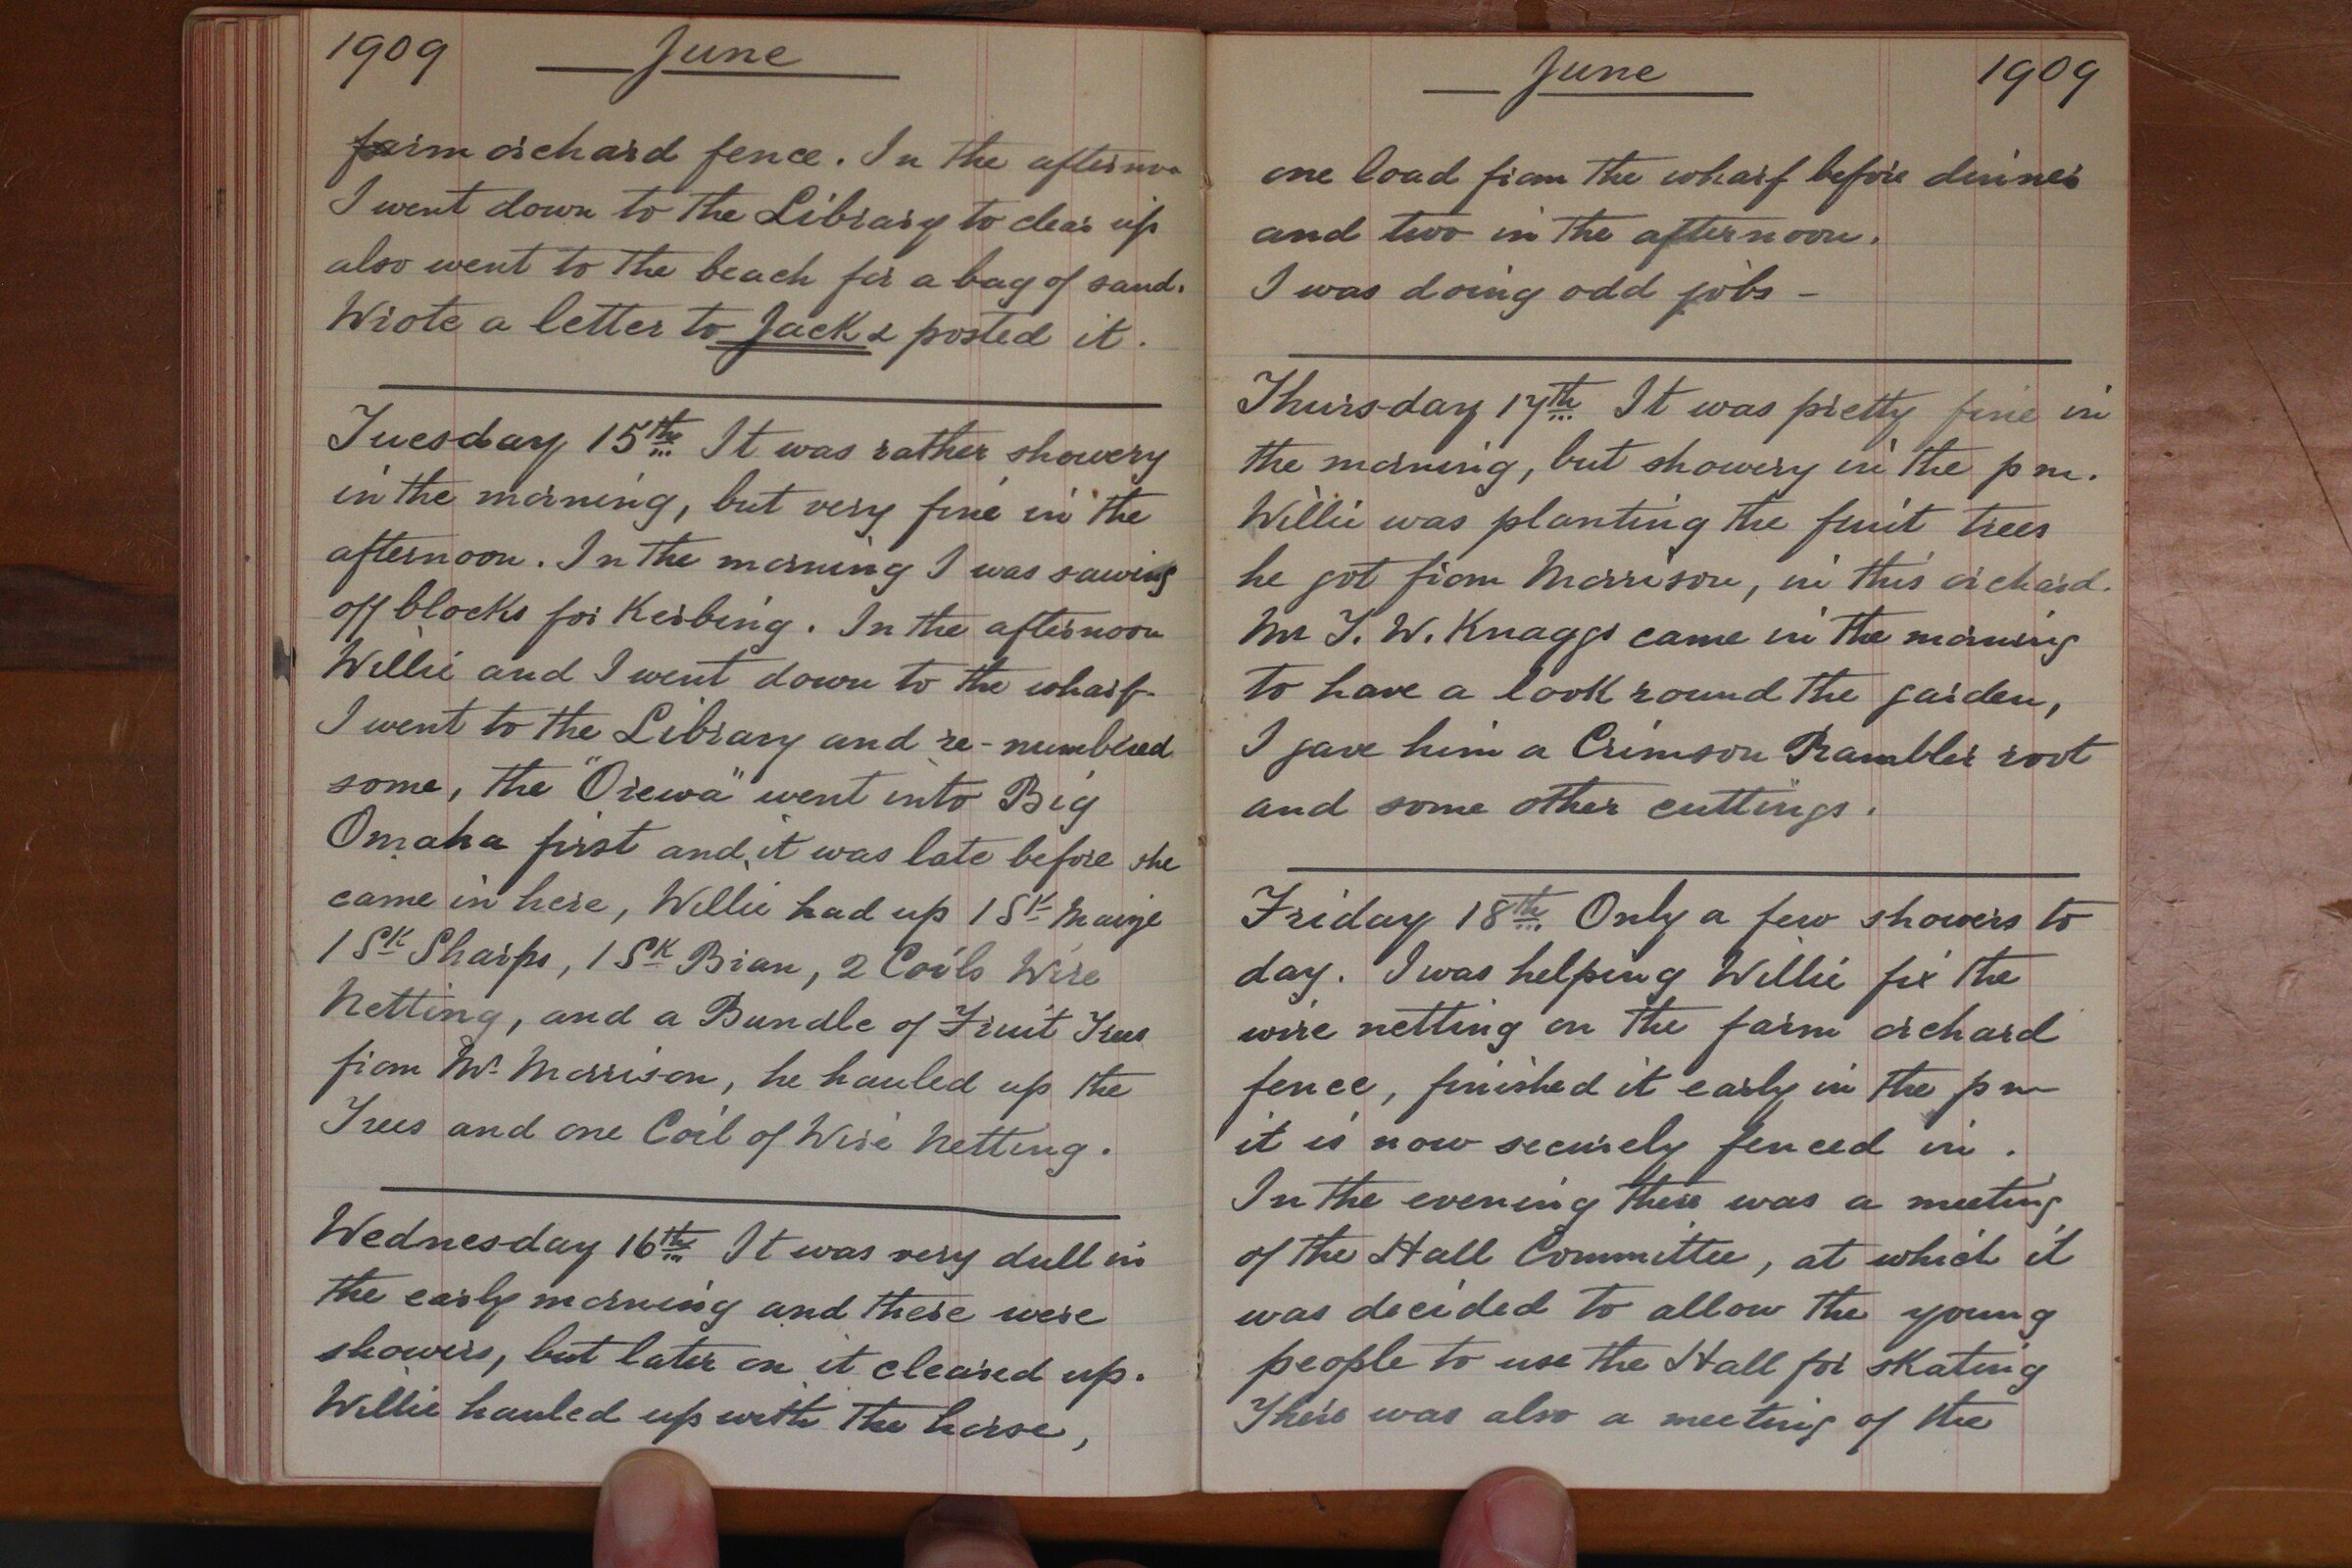 1909 June
farm orchard fence. In the afternoo
I went down to the Library to clear up
also went to the beach for a bag of sand.
Wrote a letter to Jack & posted it.
Tuesday 15th It was rather showery
in the morning, but very fine in the
afternoon. In the morning I was sawing
off blocks for Kerbing. In the afternoon
Willie and I went down to the wharf
I went to the Library and re-numbered
some, the "Orewa" went into Big
Omaha first and it was late before she
came in here, Willie had up 1 Sk Maize
1 Sk Sharps, 1 Sk Bran, 2 Coils Wire
Netting, and a Bundle of Fruit Trees
from Mr Morrison, he hauled up the
Trees and one Coil of Wire Netting.
Wednesday 16th It was very dull in
the early morning and there were
showers, but later on it cleared up.
Willie hauled up with the horse,
June 1909
one load from the wharf before dinner
and two in the afternoon.
I was doing odd jobs -
Thursday 17th It was pretty fine in
the morning, but showery in the pm.
Willie was planting the fruit trees
he got from Morrison, in this orchard.
Mr T. W. Knaggs came in the morning
to have a look round the garden,
I gave him a Crimson Rambler root
and some other cuttings.
Friday 18th Only a few showers to
day. I was helping Willie fix the
wire netting on the farm orchard
fence, finished it early in the pm
it is now securely fenced in.
In the evening there was a meeting
of the Hall Committee, at which it
was decided to allow the young
people to use the Hall for skating
There was also a meeting of the